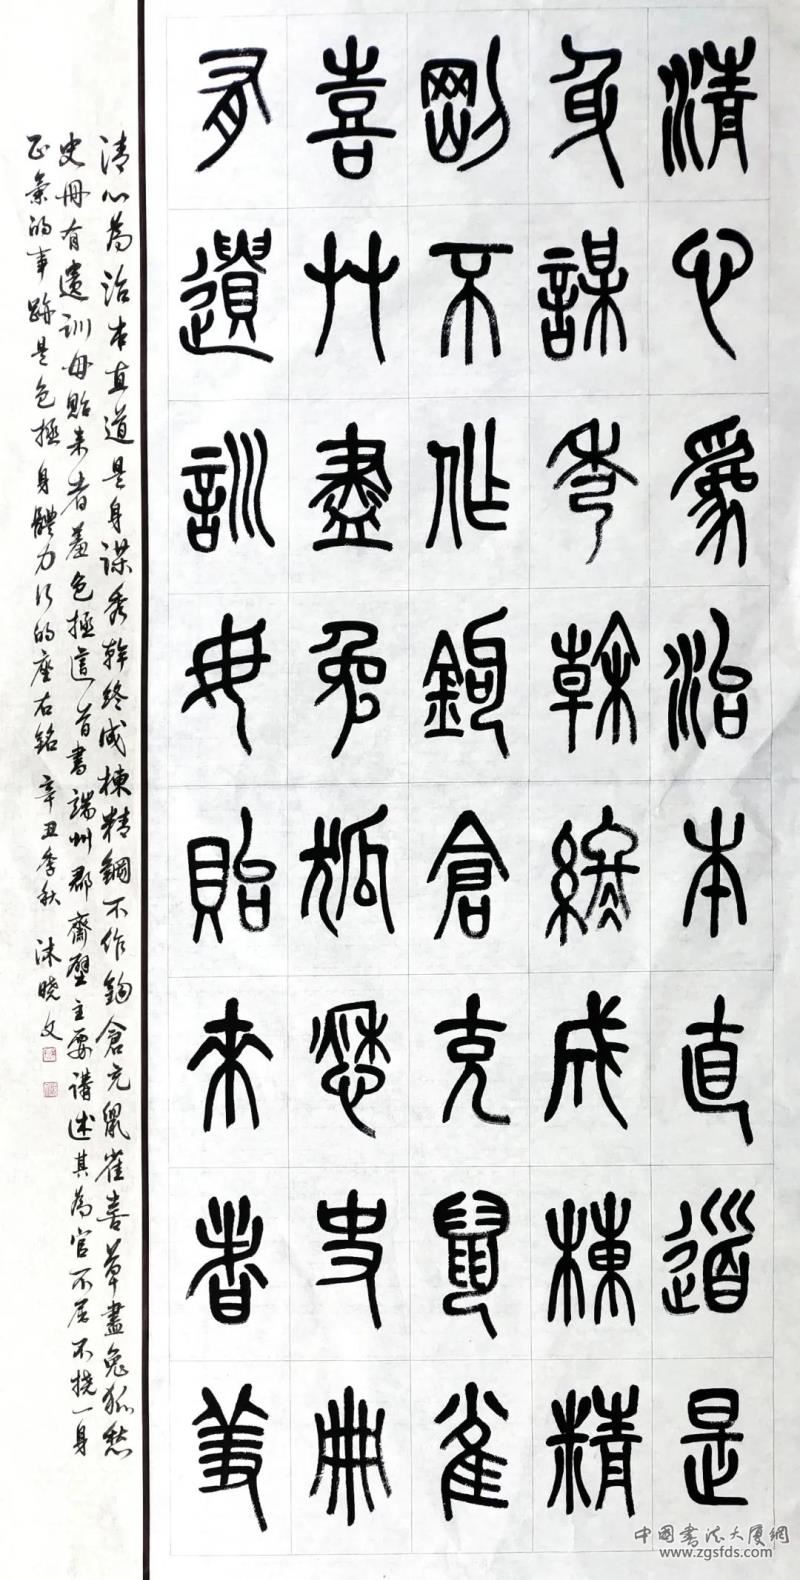 清心為治本直道是
身謀秀幹終成棟精
剛不作鉤倉充鼠雀
喜艸盡兔狐愁史冊
有遺訓毋貽來者羞
清心為治本直道是身謀秀幹終成棟精鋼不作鉤倉充鼠雀喜草盡兔狐愁
史冊有遺訓毋貽来者羞包拯這首書端州郡齋壁主要講述其為官不屈不撓一身
正氣的事跡是包拯身體力行的座右銘 辛丑季秋 沐曉文
中国書法大厦網
www.zgsfds.com